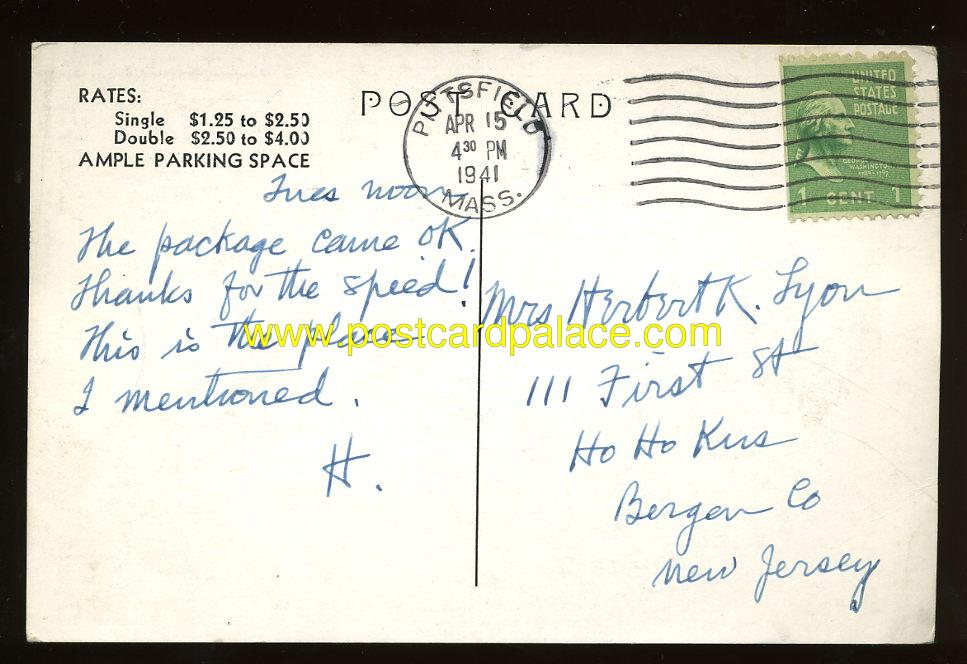 RATES:
Single $1.25 to $2.50
Double $2.50 to $4.00
AMPLE PARKING SPACE
POST CARD
PITTSFIELD
APR 15
4 30 PM
1941
MASS.
UNITED
STATES
POSTAGE
GEORGE
WASHINGTON
1789-1797
1 CENT 1
Tues noon
The package came OK.
Thanks for the speed!
This is the place
I mentioned.
H.
Mrs Herbert K. Lyon
111 First St
Ho Ho Kus
Bergen Co
New Jersey
www.postcardpalace.com